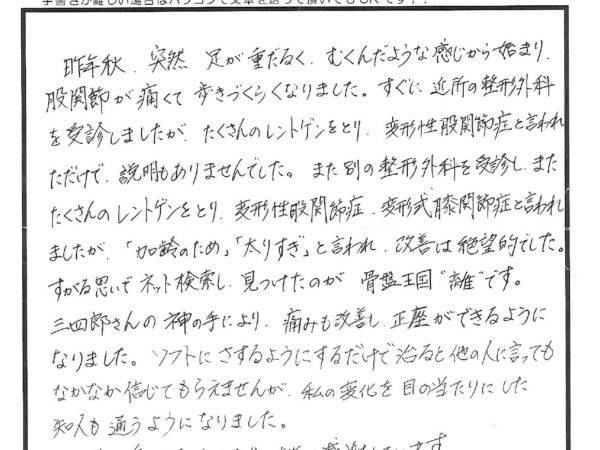 手書きが難しい場合はパソコンで文章を送って頂いてもOKです！！
昨年秋、突然 足が重だるく、むくんだような感じから始まり、
股関節が痛くて 歩きづらくなりました。すぐに 近所の整形外科
を受診しましたが、たくさんのレントゲンをとり、変形性股関節症と言われ
ただけで、説明もありませんでした。また別の整形外科を受診し、また
たくさんのレントゲンをとり、変形性股関節症、変形式膝関節症と言われ
ましたが、「加齢のため」「太りすぎ」と言われ、改善は絶望的でした。
すがる思いでネット検索し、見つけたのが 骨盤王国"雒"です。
三四郎さんの 神の手により、痛みも改善し、正座ができるように
なりました。ソフトに さするようにするだけで治ると他の人に言っても
なかなか信じてもらえませんが、私の変化を目の当たりにした
知人も通うようになりました。